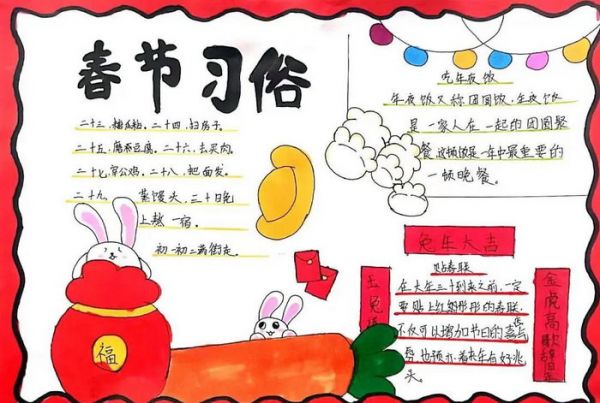 春节习俗
二十三,糖瓜粘,二十四,扫房子。
二十五,磨豆腐,二十六,去买肉。
二十七,宰公鸡,二十八,把面发。
二十九,蒸馒头,三十日晚
上熬一宿。
初一初二满街走。
吃年夜饭
年夜饭又称团圆饭,年夜饭
是一家人在一起的团圆聚
餐,这顿饭是一年中最重要的
一顿晚餐。
兔年大吉
贴春联
在大年三十到来之前,一定
要贴上红彤彤的春联,
不仅可以增加节日的喜气
也预示着来年有好兆
头。
玉兔
金虎高歌辞旧
福